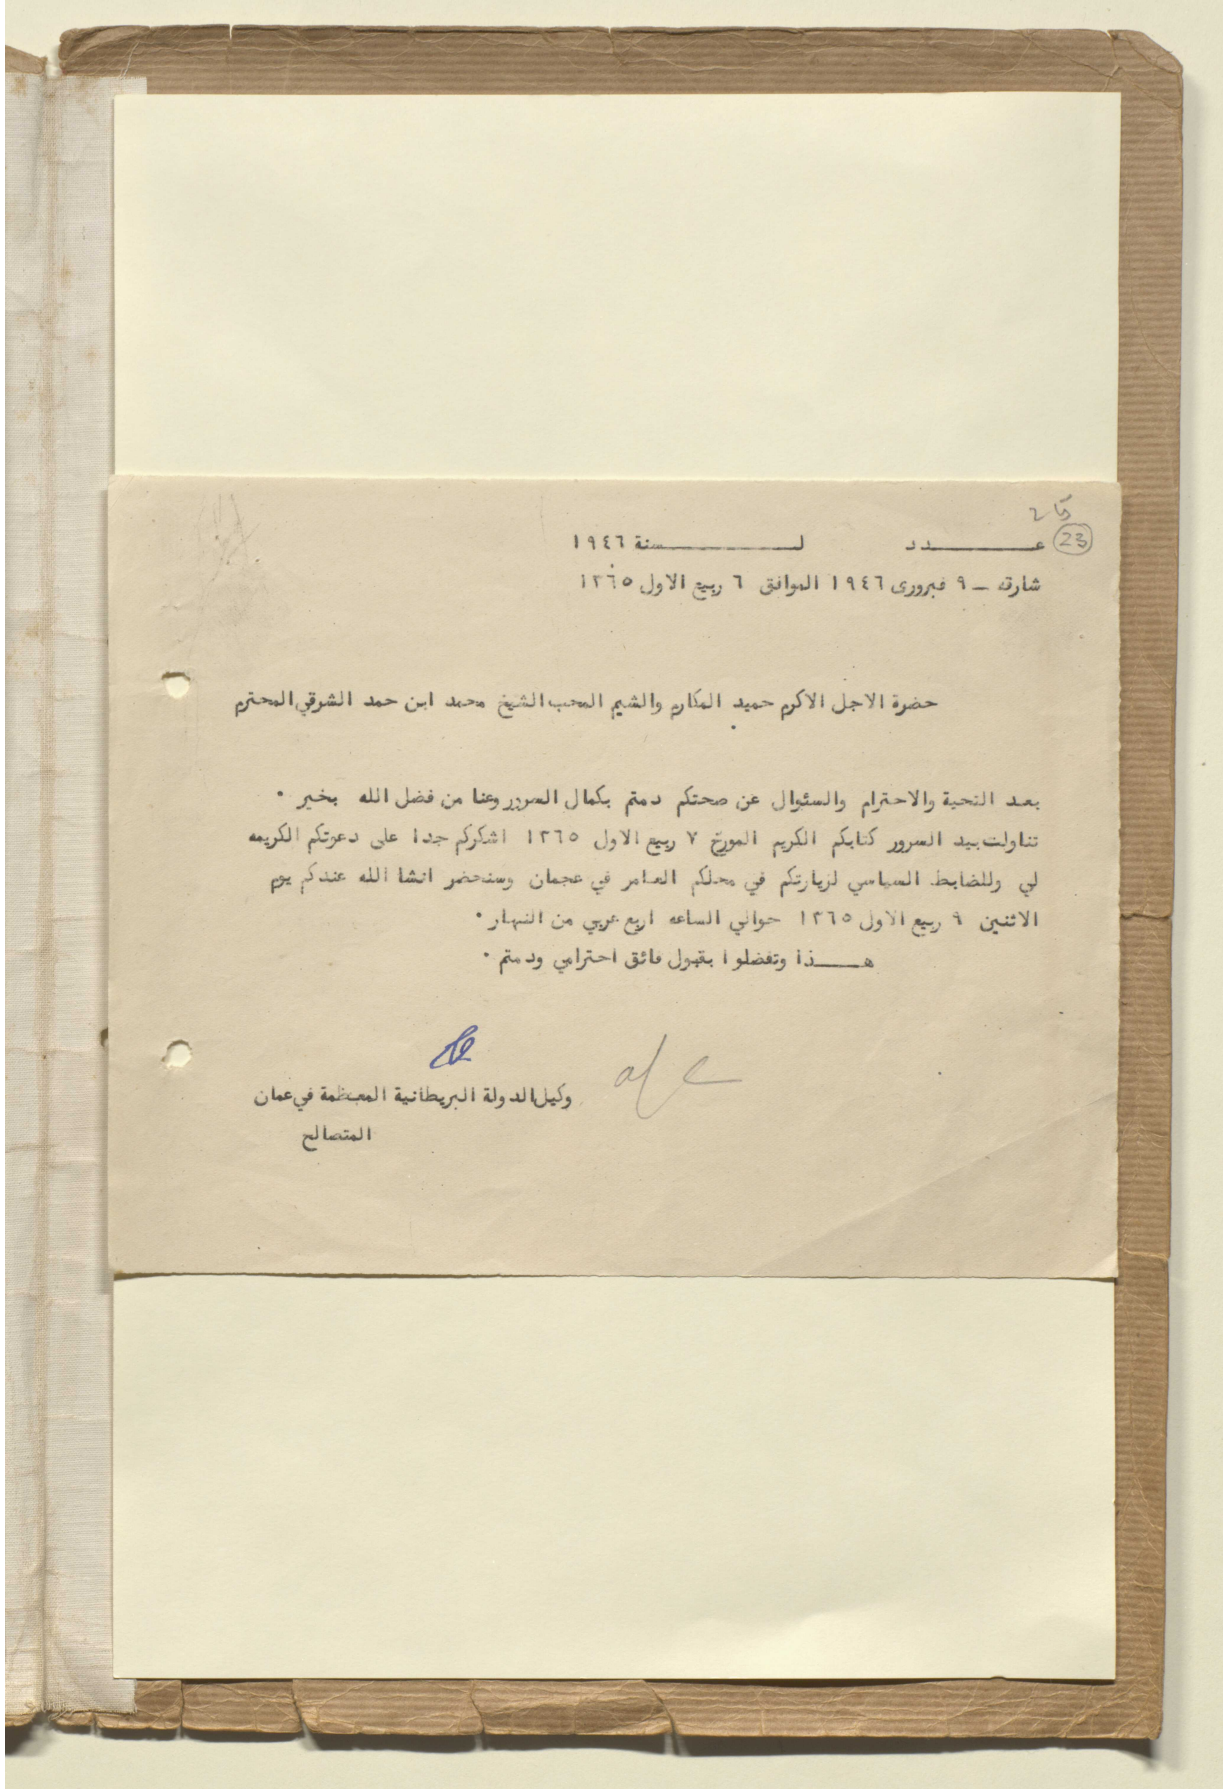 23
عـــــدد لـــــــسنة ١٩٤٦
شارقه – ٩ فبروري ١٩٤٦ الموافق ٦ ربيع الاول ١٣٦٥
حضرة الاجل الاكرم حميد المكارم والشيم المحب الشيخ محمد ابن حمد الشرقي المحترم
بعد التحية والاحترام والسئوال عن صحتكم دمتم بكمال السرور وعنا من فضل الله بخير ٠
تناولت بيد السرور كتابكم الكريم المورخ ٧ ربيع الاول ١٣٦٥ اشكركم جدا على دعوتكم الكريمه
لي وللضابط السياسي لزيارتكم في محلكم العامر في عجمان وسنحضر انشا الله عندكم يوم
الاثنين ٩ ربيع الاول ١٣٦٥ حوالي الساعه اربع عربي من النهار ٠
هـــذا وتفضلوا بقبول فائق احترامي ودمتم ٠
وكيل الدولة البريطانية المعظمة في عمان
المتصالح